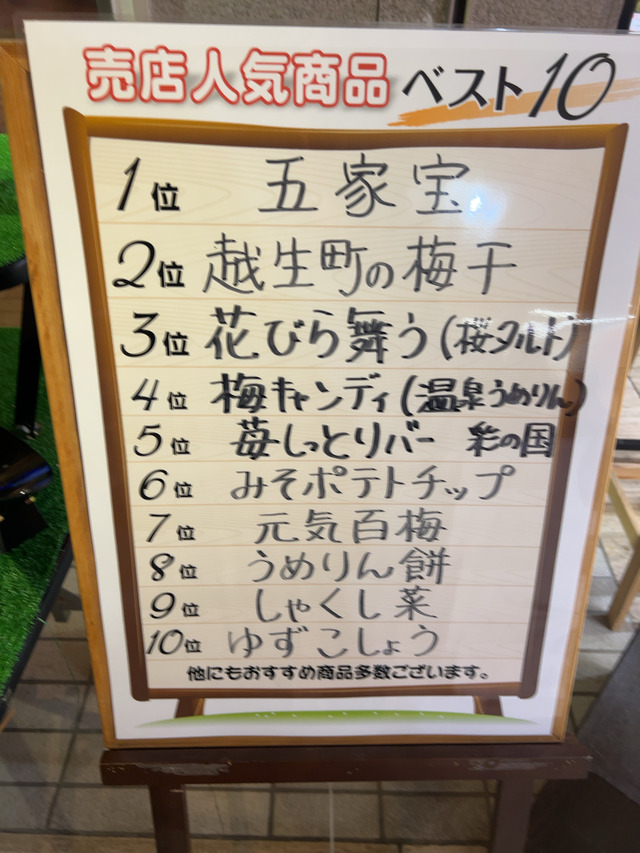 売店人気商品ベスト10
1位 五家宝
2位 越生町の梅干
3位 花びら舞う(桜タルト)
4位 梅キャンディ(温泉うめりん)
5位 苺しっとりバー 彩の国
6位 みそポテトチップ
7位 元気百梅
8位 うめりん餅
9位 しゃくし菜
10位 ゆずこしょう
他にもおすすめ商品多数ございます。